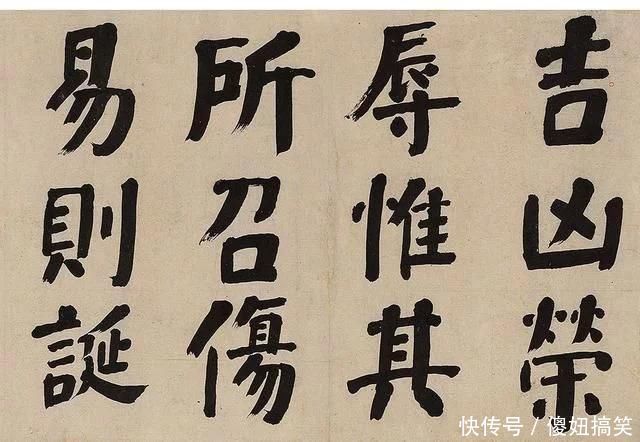 吉凶榮
辱惟其
所召傷
易則誕
快传号/傻妞搞笑